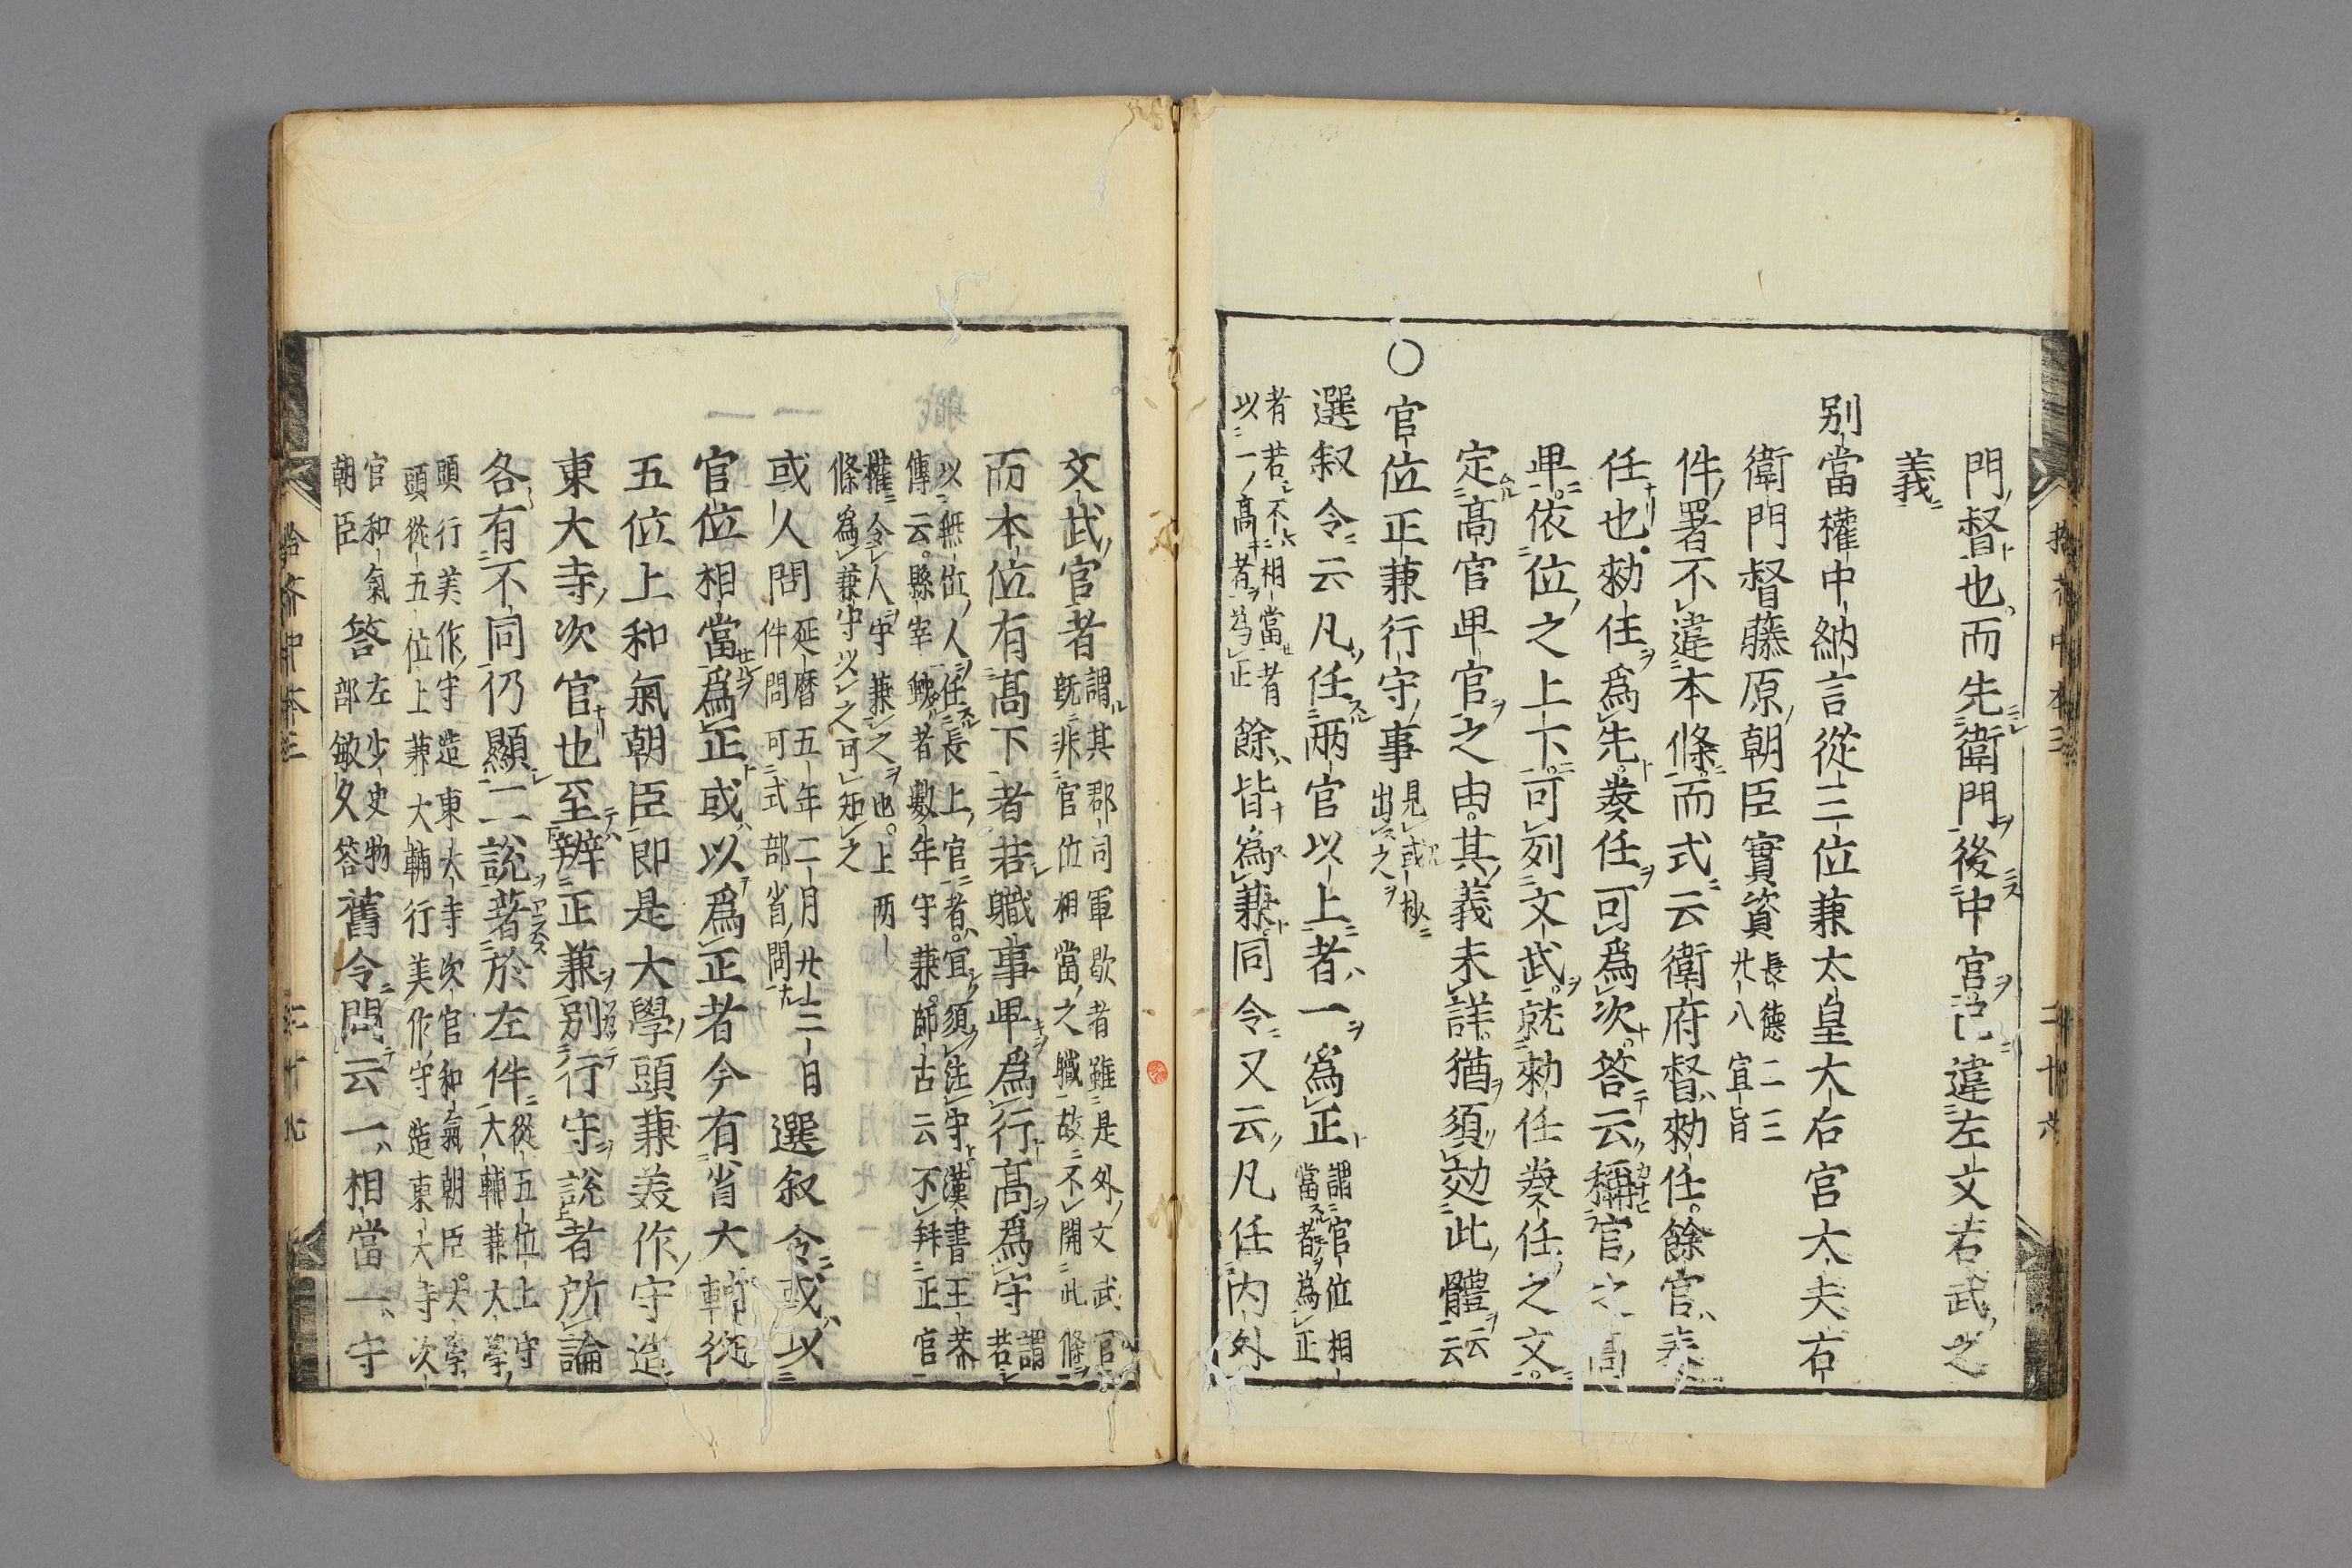 門督也而先衛門後中宮已違左文右武之
義
別當權中納言從三位兼太皇大后宮大夫右
衛門督藤原朝臣實資長德二三
廿八宣旨
件署不違本條而式云衛府督勅任餘官奏
任也勅任爲先奏任可爲次答云稱官之高
卑依位之上下可列文武就勅任奏任之文
定高官卑官之由其義未詳猶須効此體云云
○官位正兼行守事見或抄
出之
選叙令云凡任兩官以上者一爲正謂官位相
當者爲正
者若不相當者
以一高者爲正餘皆爲兼同令又云凡任内外
文武官者謂其郡司軍毅者雖是外文武官
既非官位相當之職故不開此條
而本位有高下者若職事卑爲行高爲守謂
若
以無位人任長上官者宜須注守漢書王莽
傳云縣宰缺者數年守兼師古云不拜正官
權令人守兼之也上兩
條爲兼守以之可知之
或人問延曆五年二月廿二日
件問可式部省問選叙令或以
官位相當爲正或以爲正者今有省大輔從
五位上和氣朝臣即是大學頭兼美作守造
東大寺次官也至辨正兼別行守説者所論
各有不同仍顯二説著於左件從五位上守
大輔兼大學
頭行美作守造東大寺次官和氣朝臣大學
頭從五位上兼大輔行美作守造東大寺次
官和氣
朝臣答左少史物
部敏久答舊令問云一相當一守